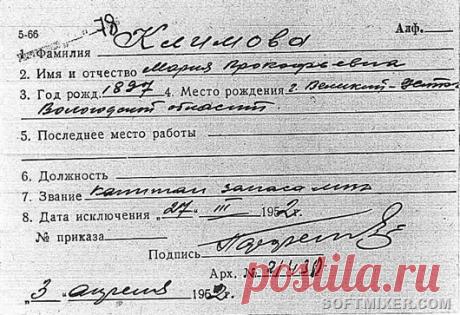 5-66 78 Алф.
1. Фамилия Климова
2. Имя и отчество Мария Прокофьевна
3. Год рожд. 1897 4. Место рождения г. Великий-Устюг
Вологодской области
5. Последнее место работы
6. Должность
7. Звание капитан запаса
8. Дата исключения „27" III 1952г.
№ приказа
Подпись
Арх. №
„3" апреля 1952г.
postila.ru
SOFTMIXER.com